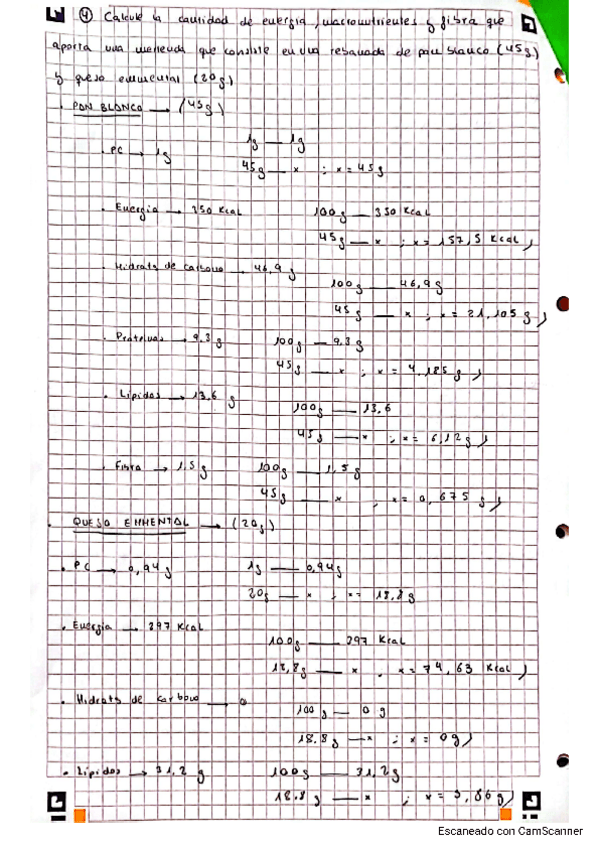 ④ Calcule la cantidad de energía, macronutrientes y fibra que
aporta una merienda que consiste en una rebanada de pan blanco (45g)
y queso emmental (20g)
· PAN BLANCO → (45g)
· PC → 1g 1g — 1g
45g — x ; x = 45g
· Energía → 350 Kcal 100g — 350 Kcal
45g — x ; x = 157,5 Kcal
· Hidrato de carbono → 46,9 g
100g — 46,9g
45g — x ; x = 21,105 g
· Proteínas → 9,3 g 100g — 9,3g
45g — x ; x = 4,185 g
· Lípidos → 13,6 g
100g — 13,6
45g — x ; x = 6,12g
· Fibra → 1,5g 100g — 1,5g
45g — x ; x = 0,675 g
· QUESO EMMENTAL → (20g)
· PC → 0,94g 1g — 0,94g
20g — x ; x = 18,8g
· Energía → 397 Kcal
100g — 397 Kcal
18,8g — x , x = 74,63 Kcal
· Hidrats de carbono → 0
100g — 0 g
18.8g — x ; x = 0g
· Lípidos → 31,2 g 100g — 31,2g
18.8 g — x ; x = 5,86g
Escaneado con CamScanner